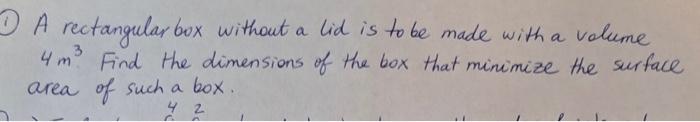 ① A rectangular box without a lid is to be made with a volume
4 m³. Find the dimensions of the box that minimize the surface
area of such a box.
4 2